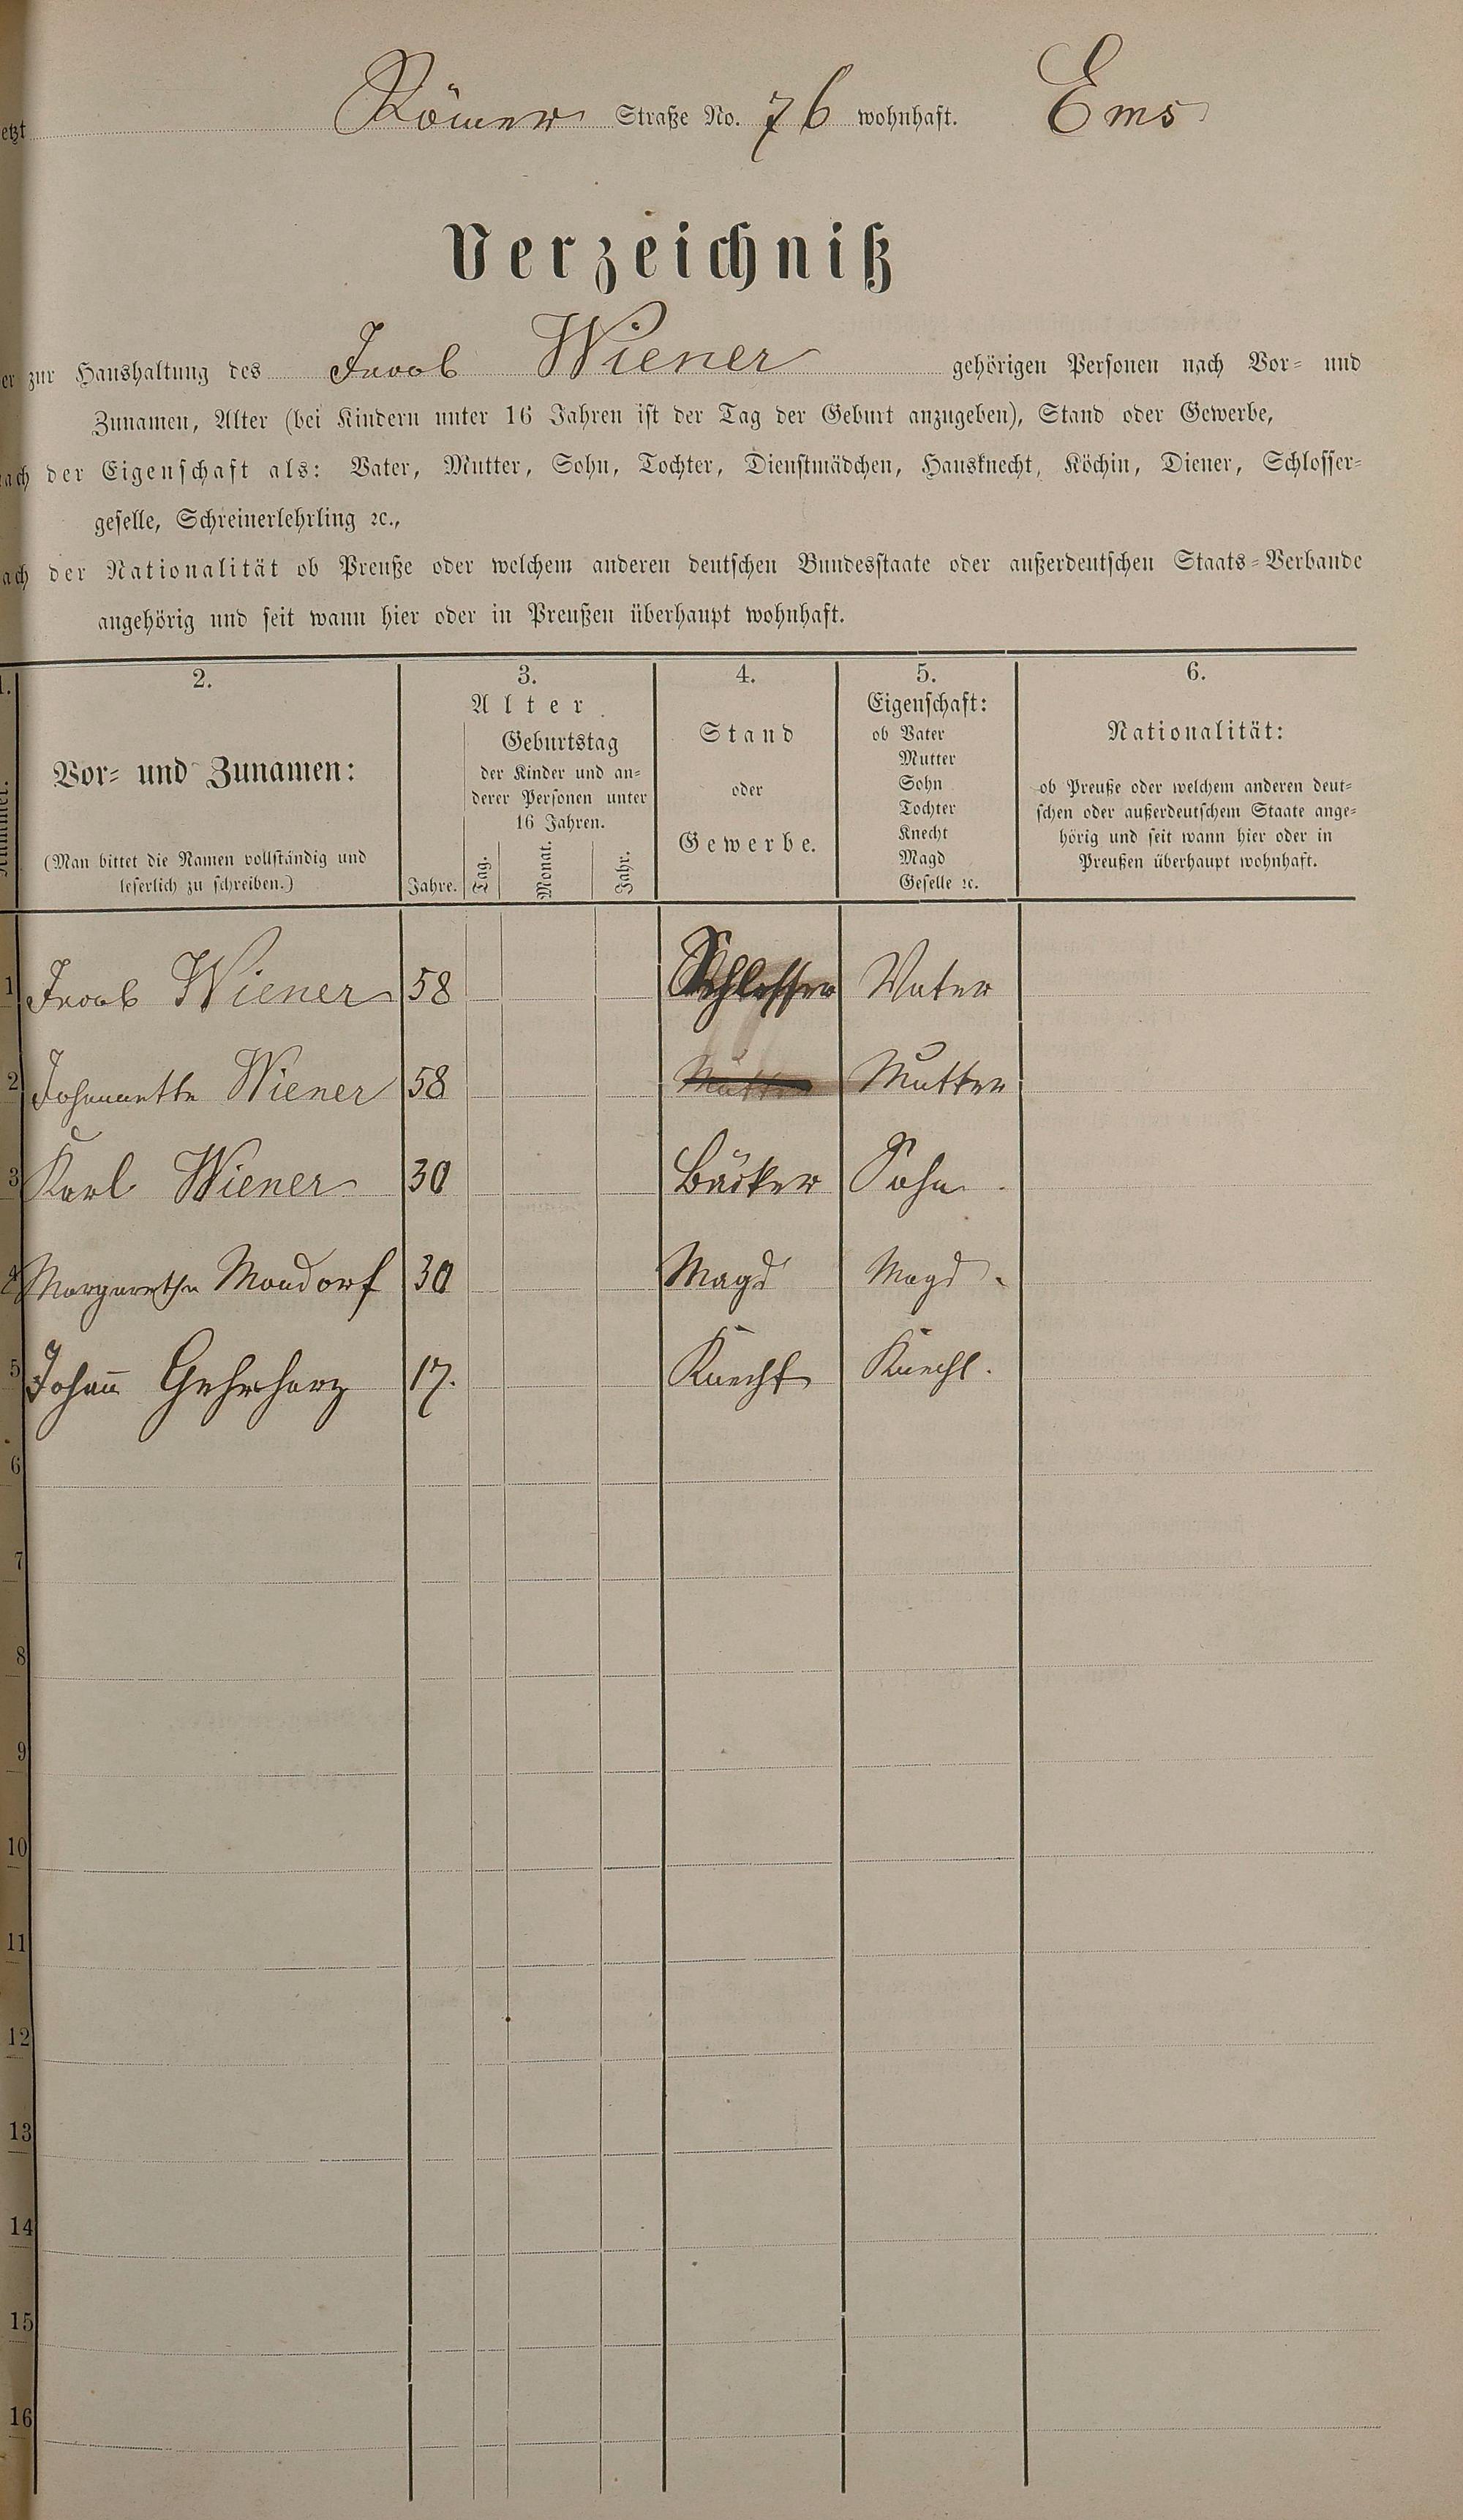 etzt Römer Straße No. 76 wohnhaft. Ems
Verzeichniß
er zur Haushaltung des Jacob Wiener gehörigen Personen nach Vor- und
Zunamen, Alter (bei Kindern unter 16 Jahren ist der Tag der Geburt anzugeben), Stand oder Gewerbe,
ach der Eigenschaft als: Vater, Mutter, Sohn, Tochter, Dienstmädchen, Hausknecht, Köchin, Diener, Schlosser-
geselle, Schreinerlehrling ꝛc.,
ach der Nationalität ob Preuße oder welchem anderen deutschen Bundesstaate oder außerdeutschen Staats-Verbande
angehörig und seit wann hier oder in Preußen überhaupt wohnhaft.
1.
Nummer.
2.
Vor- und Zunamen:
(Man bittet die Namen vollständig und
leserlich zu schreiben.)
3.
Alter.
Jahre.
Geburtstag
der Kinder und an-
derer Personen unter
16 Jahren.
Tag.
Monat.
Jahr.
4.
Stand
oder
Gewerbe.
5.
Eigenschaft:
ob Vater
Mutter
Sohn
Tochter
Knecht
Magd
Geselle ꝛc.
6.
Nationalität:
ob Preuße oder welchem anderen deut-
schen oder außerdeutschem Staate ange-
hörig und seit wann hier oder in
Preußen überhaupt wohnhaft.
1 Jacob Wiener 58 Schlosser Vater
2 Johannette Wiener 58 Mutter Mutter
3 Karl Wiener 30 Bäcker Sohn
4 Margarethe Mondorf 30 Magd Magd.
5 Johann Gehrharz 17. Knecht Knecht.
6
7
8
9
10
11
12
13
14
15
16